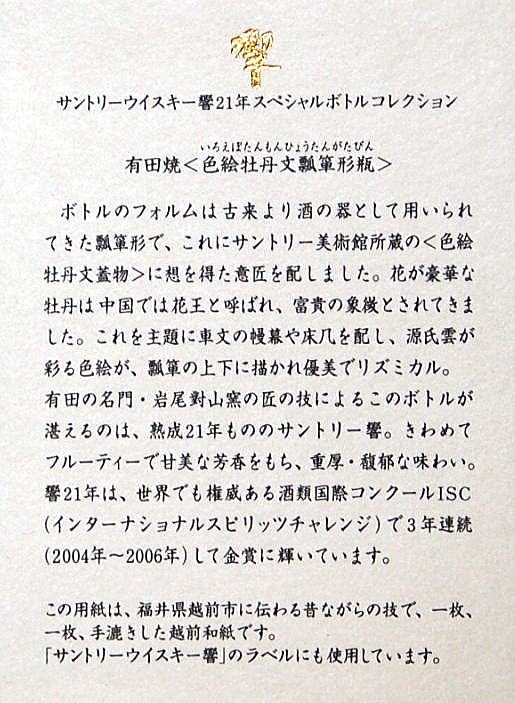 響
サントリーウイスキー響21年スペシャルボトルコレクション
いろえぼたんもんひょうたんがたびん
有田焼＜色絵牡丹文瓢箪形瓶＞
ボトルのフォルムは古来より酒の器として用いられ
てきた瓢箪形で、これにサントリー美術館所蔵の＜色絵
牡丹文蓋物＞に想を得た意匠を配しました。花が豪華な
牡丹は中国では花王と呼ばれ、富貴の象徴とされてきま
した。これを主題に車文の幔幕や床几を配し、源氏雲が
彩る色絵が、瓢箪の上下に描かれ優美でリズミカル。
有田の名門・岩尾對山窯の匠の技によるこのボトルが
湛えるのは、熟成21年もののサントリー響。きわめて
フルーティーで甘美な芳香をもち、重厚・馥郁な味わい。
響21年は、世界でも権威ある酒類国際コンクールISC
(インターナショナルスピリッツチャレンジ)で3年連続
(2004年～2006年)して金賞に輝いています。
この用紙は、福井県越前市に伝わる昔ながらの技で、一枚、
一枚、手漉きした越前和紙です。
「サントリーウイスキー響」のラベルにも使用しています。